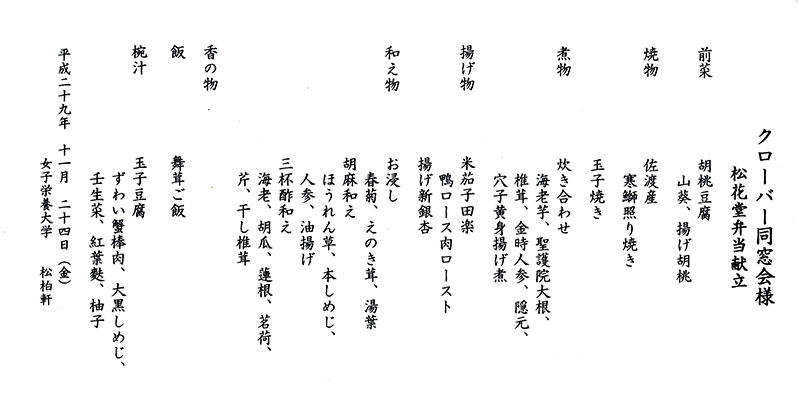 クローバー同窓会様
松花堂弁当献立
前菜　胡桃豆腐
山葵、揚げ胡桃
焼物　佐渡産
寒鰤照り焼き
玉子焼き
煮物　炊き合わせ
海老芋、聖護院大根、
椎茸、金時人参、隠元、
穴子黄身揚げ煮
揚げ物　米茄子田楽
鴨ロース肉ロースト
揚げ新銀杏
和え物　お浸し
春菊、えのき茸、湯葉
胡麻和え
ほうれん草、本しめじ、
人参、油揚げ
三杯酢和え
海老、胡瓜、蓮根、茗荷、
芹、干し椎茸
香の物
飯　舞茸ご飯
椀汁　玉子豆腐
ずわい蟹棒肉、大黒しめじ、
壬生菜、紅葉麩、柚子
平成二十九年　十一月　二十四日（金）
女子栄養大学　松柏軒